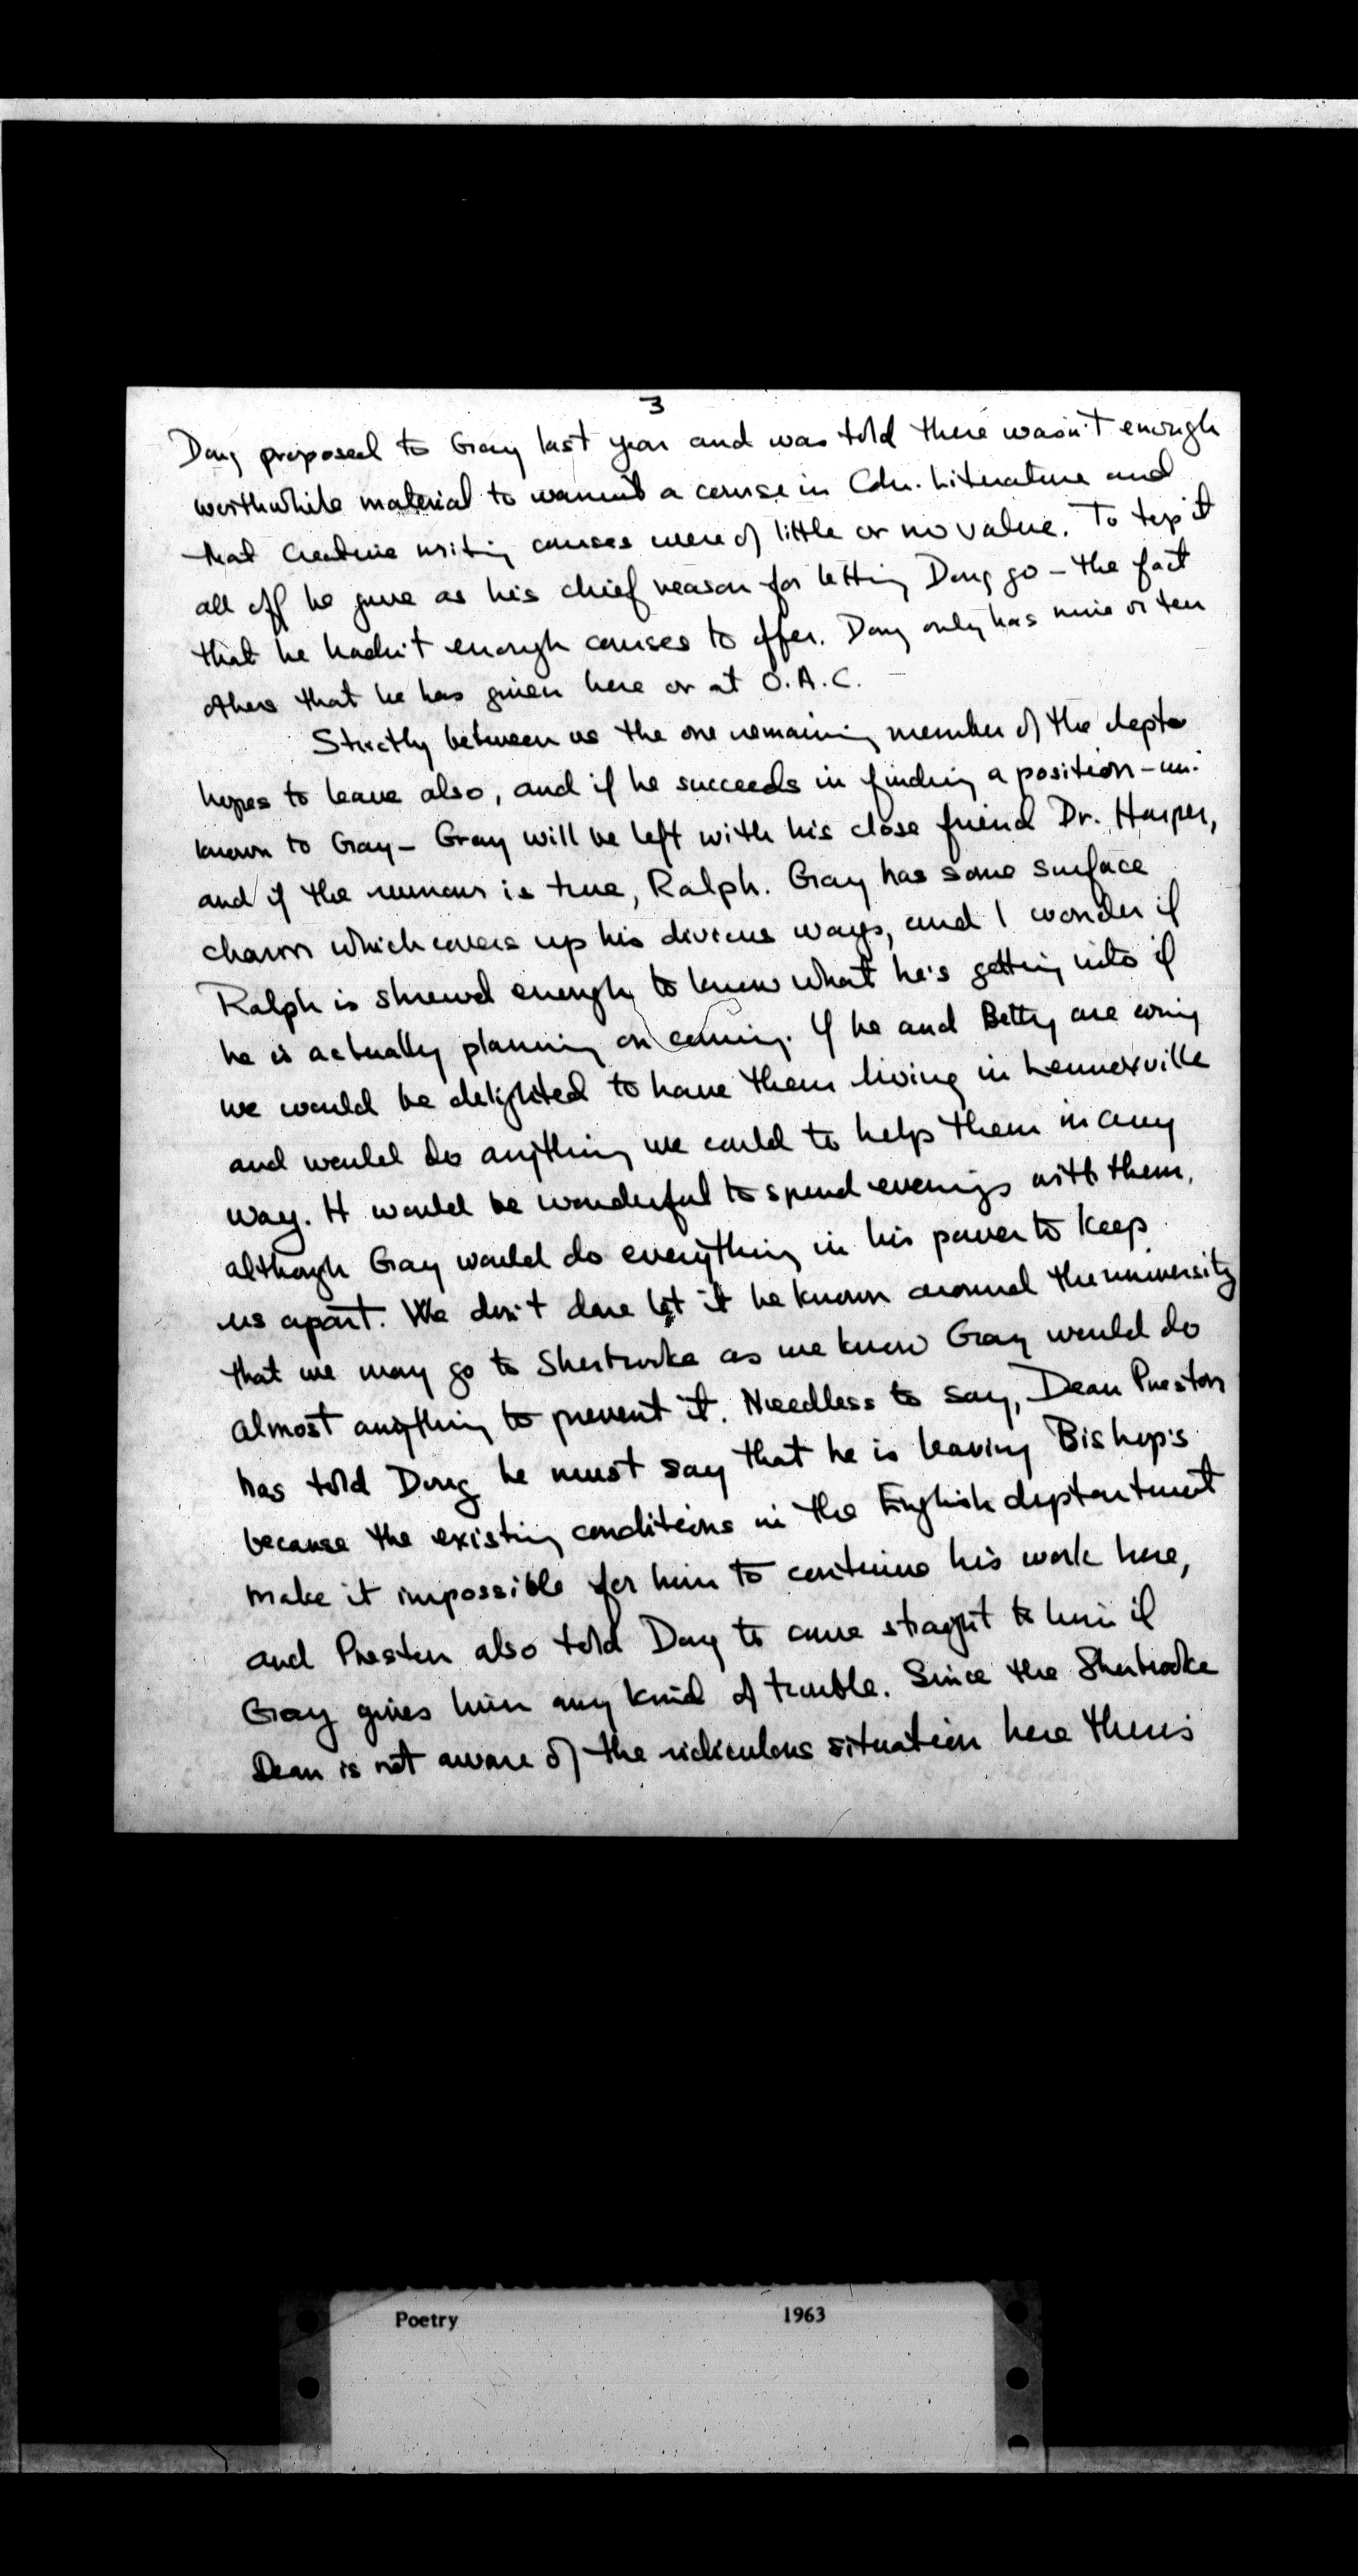 3
Doug proposed to Gray last year and was told there wasn't enough
worthwhile material to warrant a course in Cdn. Literature and
that creative writing courses were of little or no value. To top it
all off he gave as his chief reason for letting Doug go - the fact
that he hadn't enough courses to offer. Doug only has nine or ten
others that he has given here or at O.A.C.
Strictly between us the one remaining member of the dept
hopes to leave also, and if he succeeds in finding a position - un-
known to Gray - Gray will be left with his close friend Dr. Harper,
and if the rumour is true, Ralph. Gray has some surface
charm which covers up his devious ways, and I wonder if
Ralph is shrewd enough to know what he's getting into if
he is actually planning on coming. If he and Betty are coming
we would be delighted to have them living in Lennoxville
and would do anything we could to help them in any
way. It would be wonderful to spend evenings with them,
although Gray would do everything in his power to keep
us apart. We don't dare let it be known around the university
that we may go to Sherbrooke as we know Gray would do
almost anything to prevent it. Needless to say, Dean Preston
has told Doug he must say that he is leaving Bishop's
because the existing conditions in the English department
make it impossible for him to continue his work here,
and Preston also told Doug to come straight to him if
Gray gives him any kind of trouble. Since the Sherbrooke
Dean is not aware of the ridiculous situation here there's
Poetry 1963